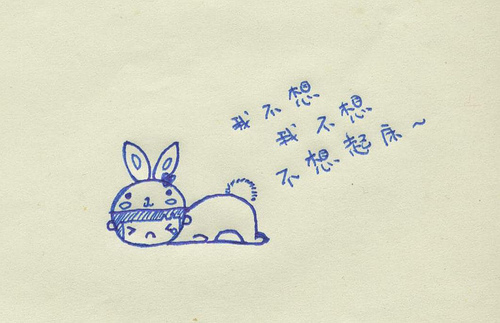 我不想
我不想
不想起床~